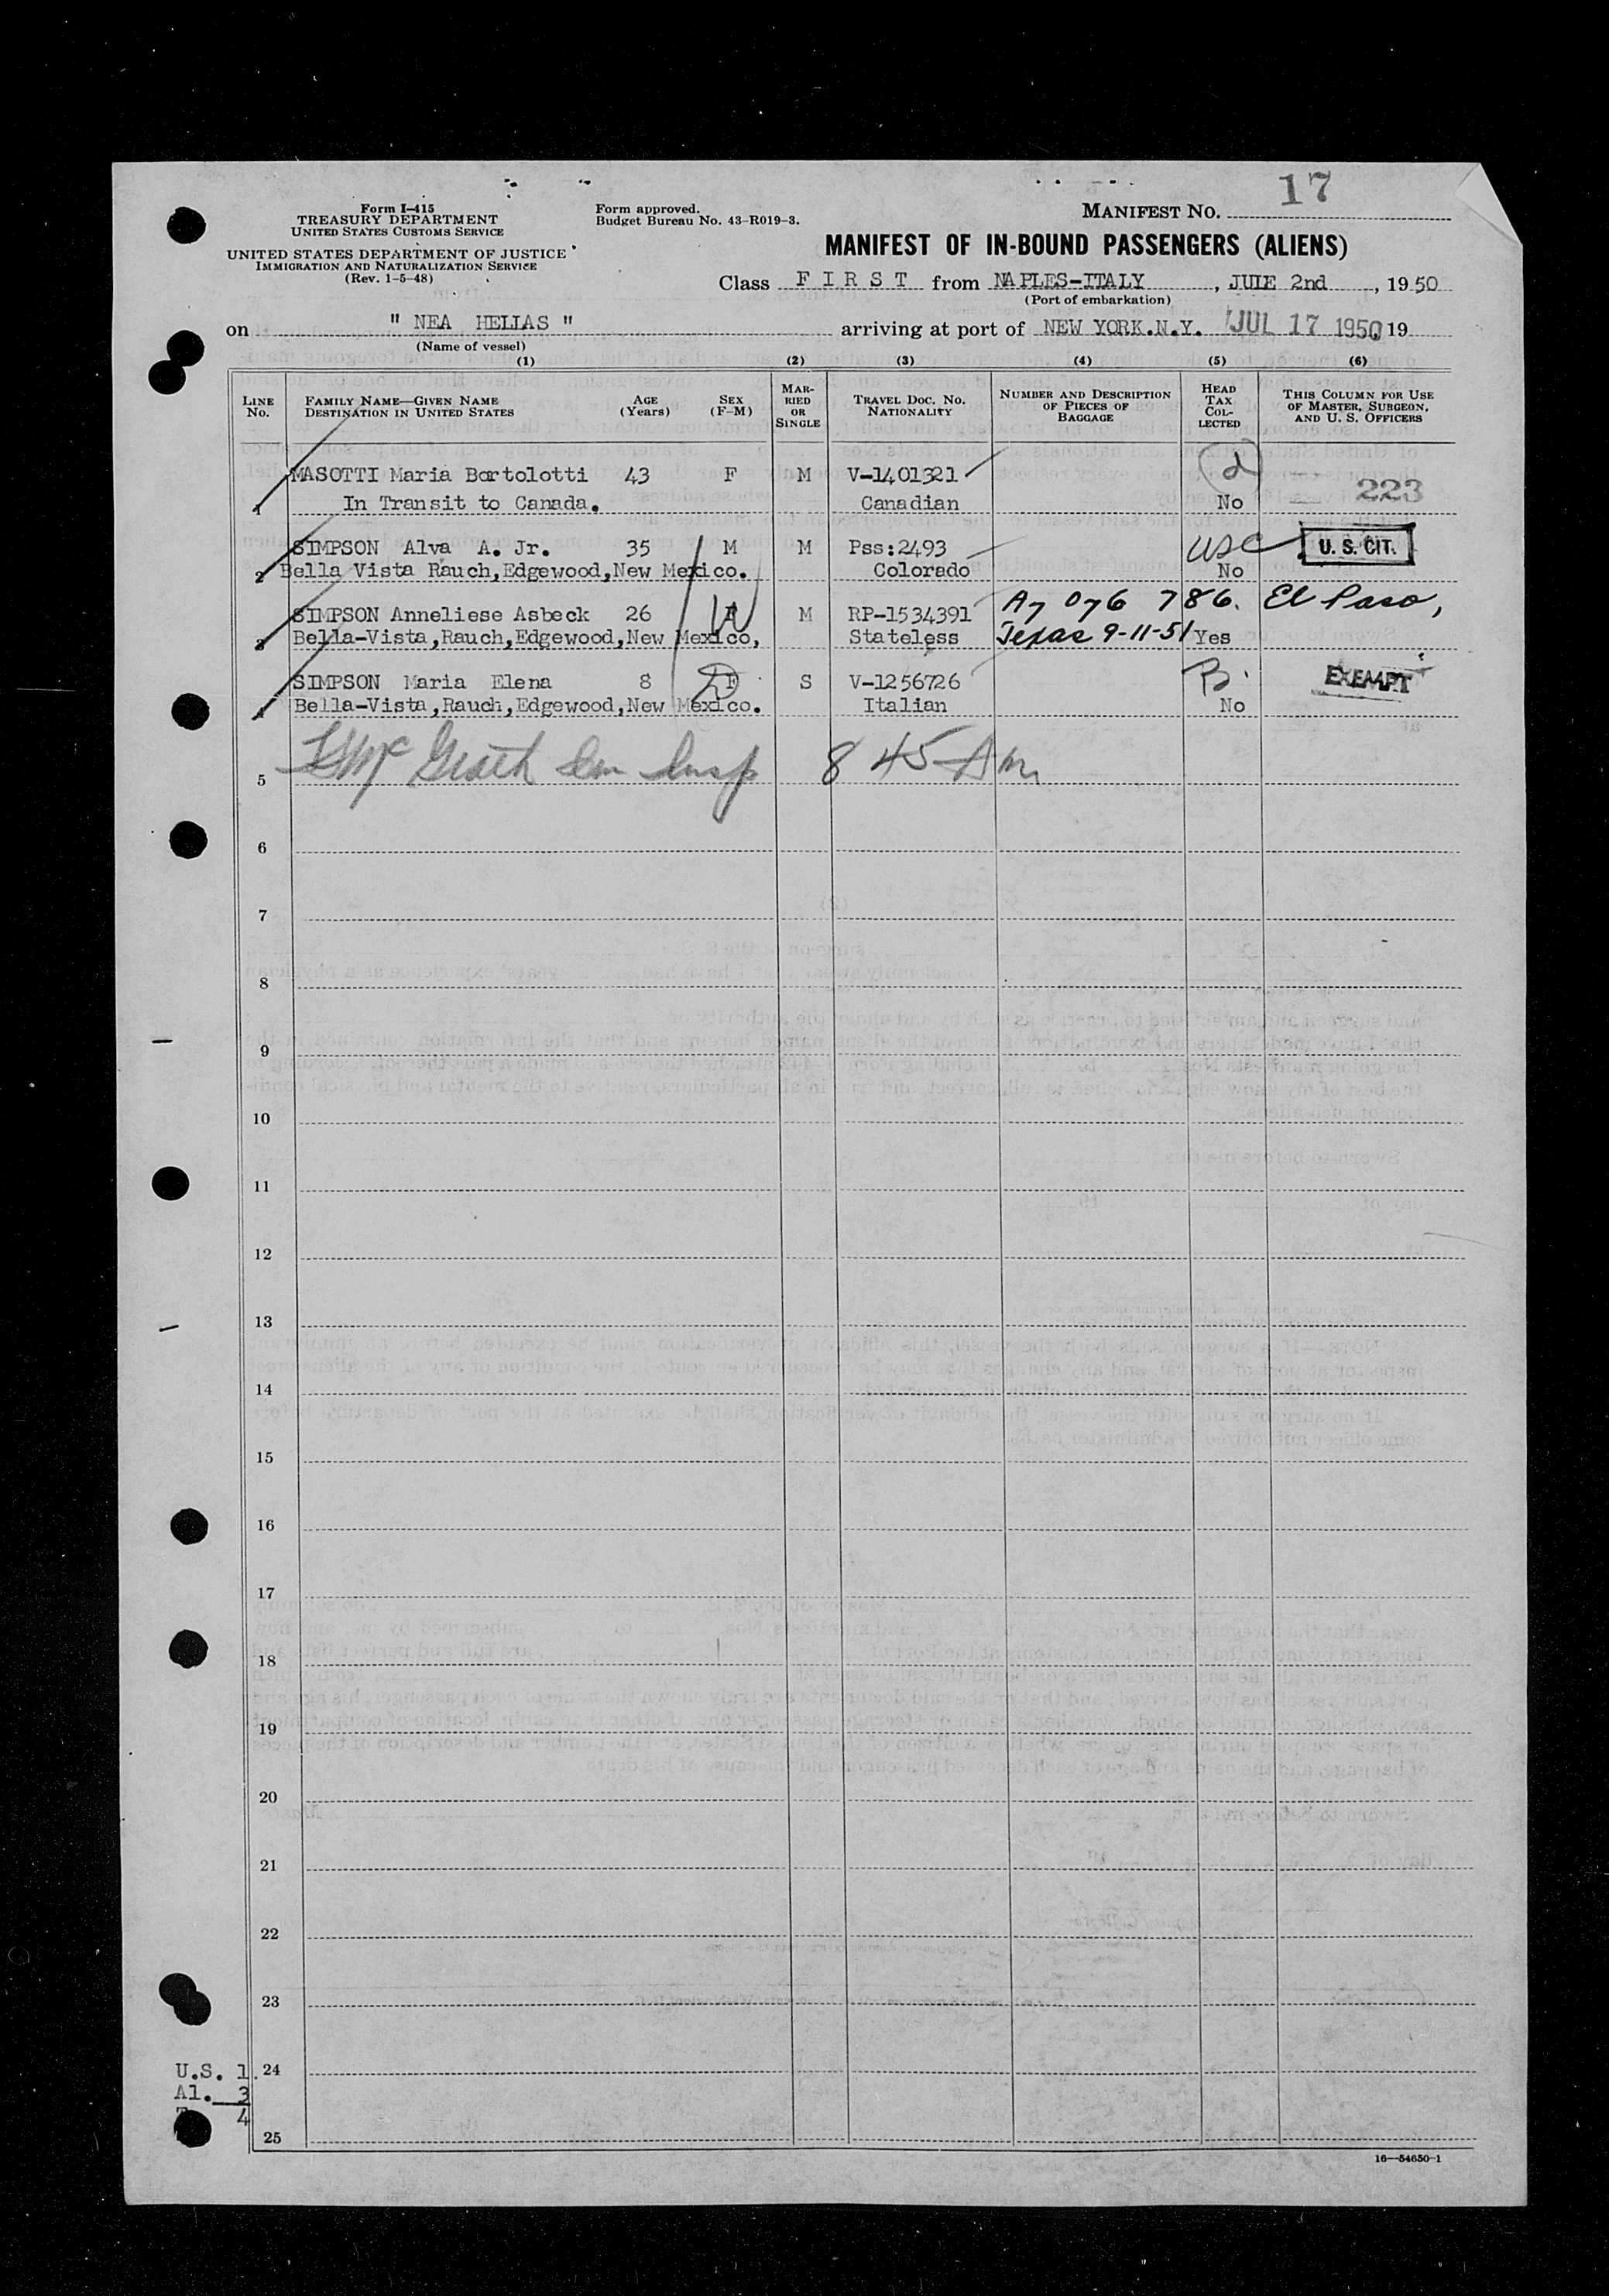 17
Form I-415
TREASURY DEPARTMENT
UNITED STATES CUSTOMS SERVICE
UNITED STATES DEPARTMENT OF JUSTICE
IMMIGRATION AND NATURALIZATION SERVICE
(Rev. 1-5-48)
Form approved.
Budget Bureau No. 43-R019-3.
MANIFEST NO.
MANIFEST OF IN-BOUND PASSENGERS (ALIENS)
Class F I R S T from NAPLES-ITALY, JULE 2nd, 1950
(Port of embarkation)
on " NEA HELIAS " arriving at port of NEW YORK.N.Y. JUL 17 1950 19
(Name of vessel)
(1) (2) (3) (4) (5) (6)
LINE No. FAMILY NAME—GIVEN NAME DESTINATION IN UNITED STATES AGE (Years) SEX (F-M) MARRIED OR SINGLE TRAVEL DOC. NO. NATIONALITY NUMBER AND DESCRIPTION OF PIECES OF BAGGAGE HEAD TAX COLLECTED THIS COLUMN FOR USE OF MASTER, SURGEON, AND U. S. OFFICERS
MASOTTI Maria Bortolotti 43 F M V-1401321
1 In Transit to Canada. Canadian No 223
SIMPSON Alva A. Jr. 35 M M Pss:2493 USC U. S. CIT.
2 Bella Vista Rauch,Edgewood,New Mexico. Colorado No
SIMPSON Anneliese Asbeck 26 F M RP-1534391 A7 076 786. El Paso,
3 Bella-Vista,Rauch,Edgewood,New Mexico, Stateless Texas 9-11-51 Yes
SIMPSON Maria Elena 8 F S V-1256726 B EXEMPT
4 Bella-Vista,Rauch,Edgewood,New Mexico. Italian No
5 McGrath Im Insp 8 45 Am
6
7
8
9
10
11
12
13
14
15
16
17
18
19
20
21
22
23
U.S. 1. 24
Al. 3
4
25
16—54650-1